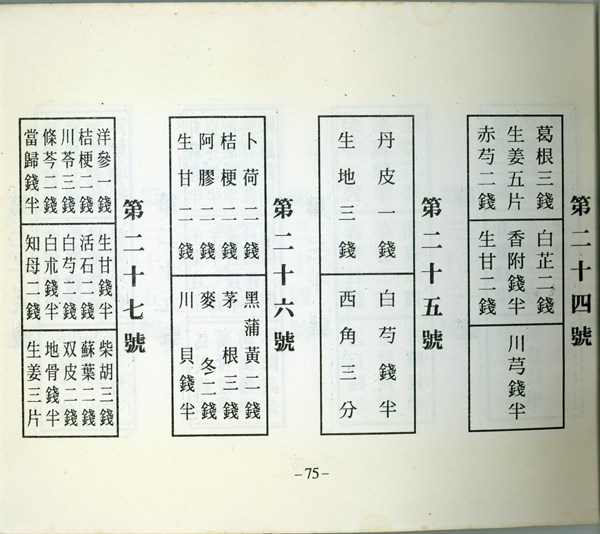 第二十四號
葛根三錢
生姜五片
赤芍二錢
白芷二錢
香附錢半
生甘二錢
川芎錢半
第二十五號
丹皮一錢
生地三錢
白芍錢半
西角三分
第二十六號
卜荷二錢
桔梗二錢
阿膠二錢
生甘二錢
黑蒲黃二錢
茅根三錢
麥冬二錢
川貝錢半
第二十七號
洋參一錢
桔梗二錢
川芩三錢
條芩二錢
當歸錢半
生甘錢半
活石二錢
白芍二錢
白朮錢半
知母二錢
柴胡三錢
蘇葉二錢
双皮二錢
地骨錢半
生姜三片
-75-